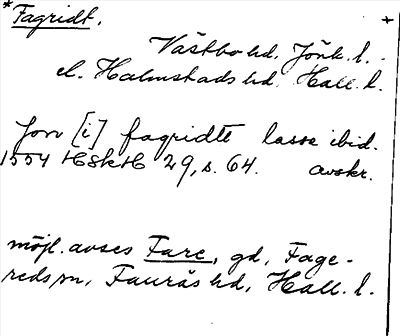 *Fagridt. +
Västbo hd, Jönk. l. -
el. Halmstads hd. Hall. l.
Jon [i] fagridtt lasse ibid.
1554 HSkH 29, s. 64. avskr.
möjl. avses Fare, gd, Fage-
reds sn, Faurås hd, Hall. l.